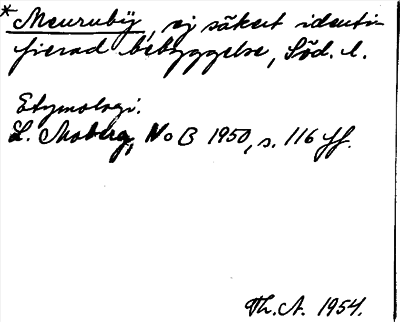 *Meuruby, ej säkert identi-
fierad bebyggelse, Söd. l.
Etymologi.
L. Moberg, NoB 1950, s. 116 ff.
Th. A. 1954.